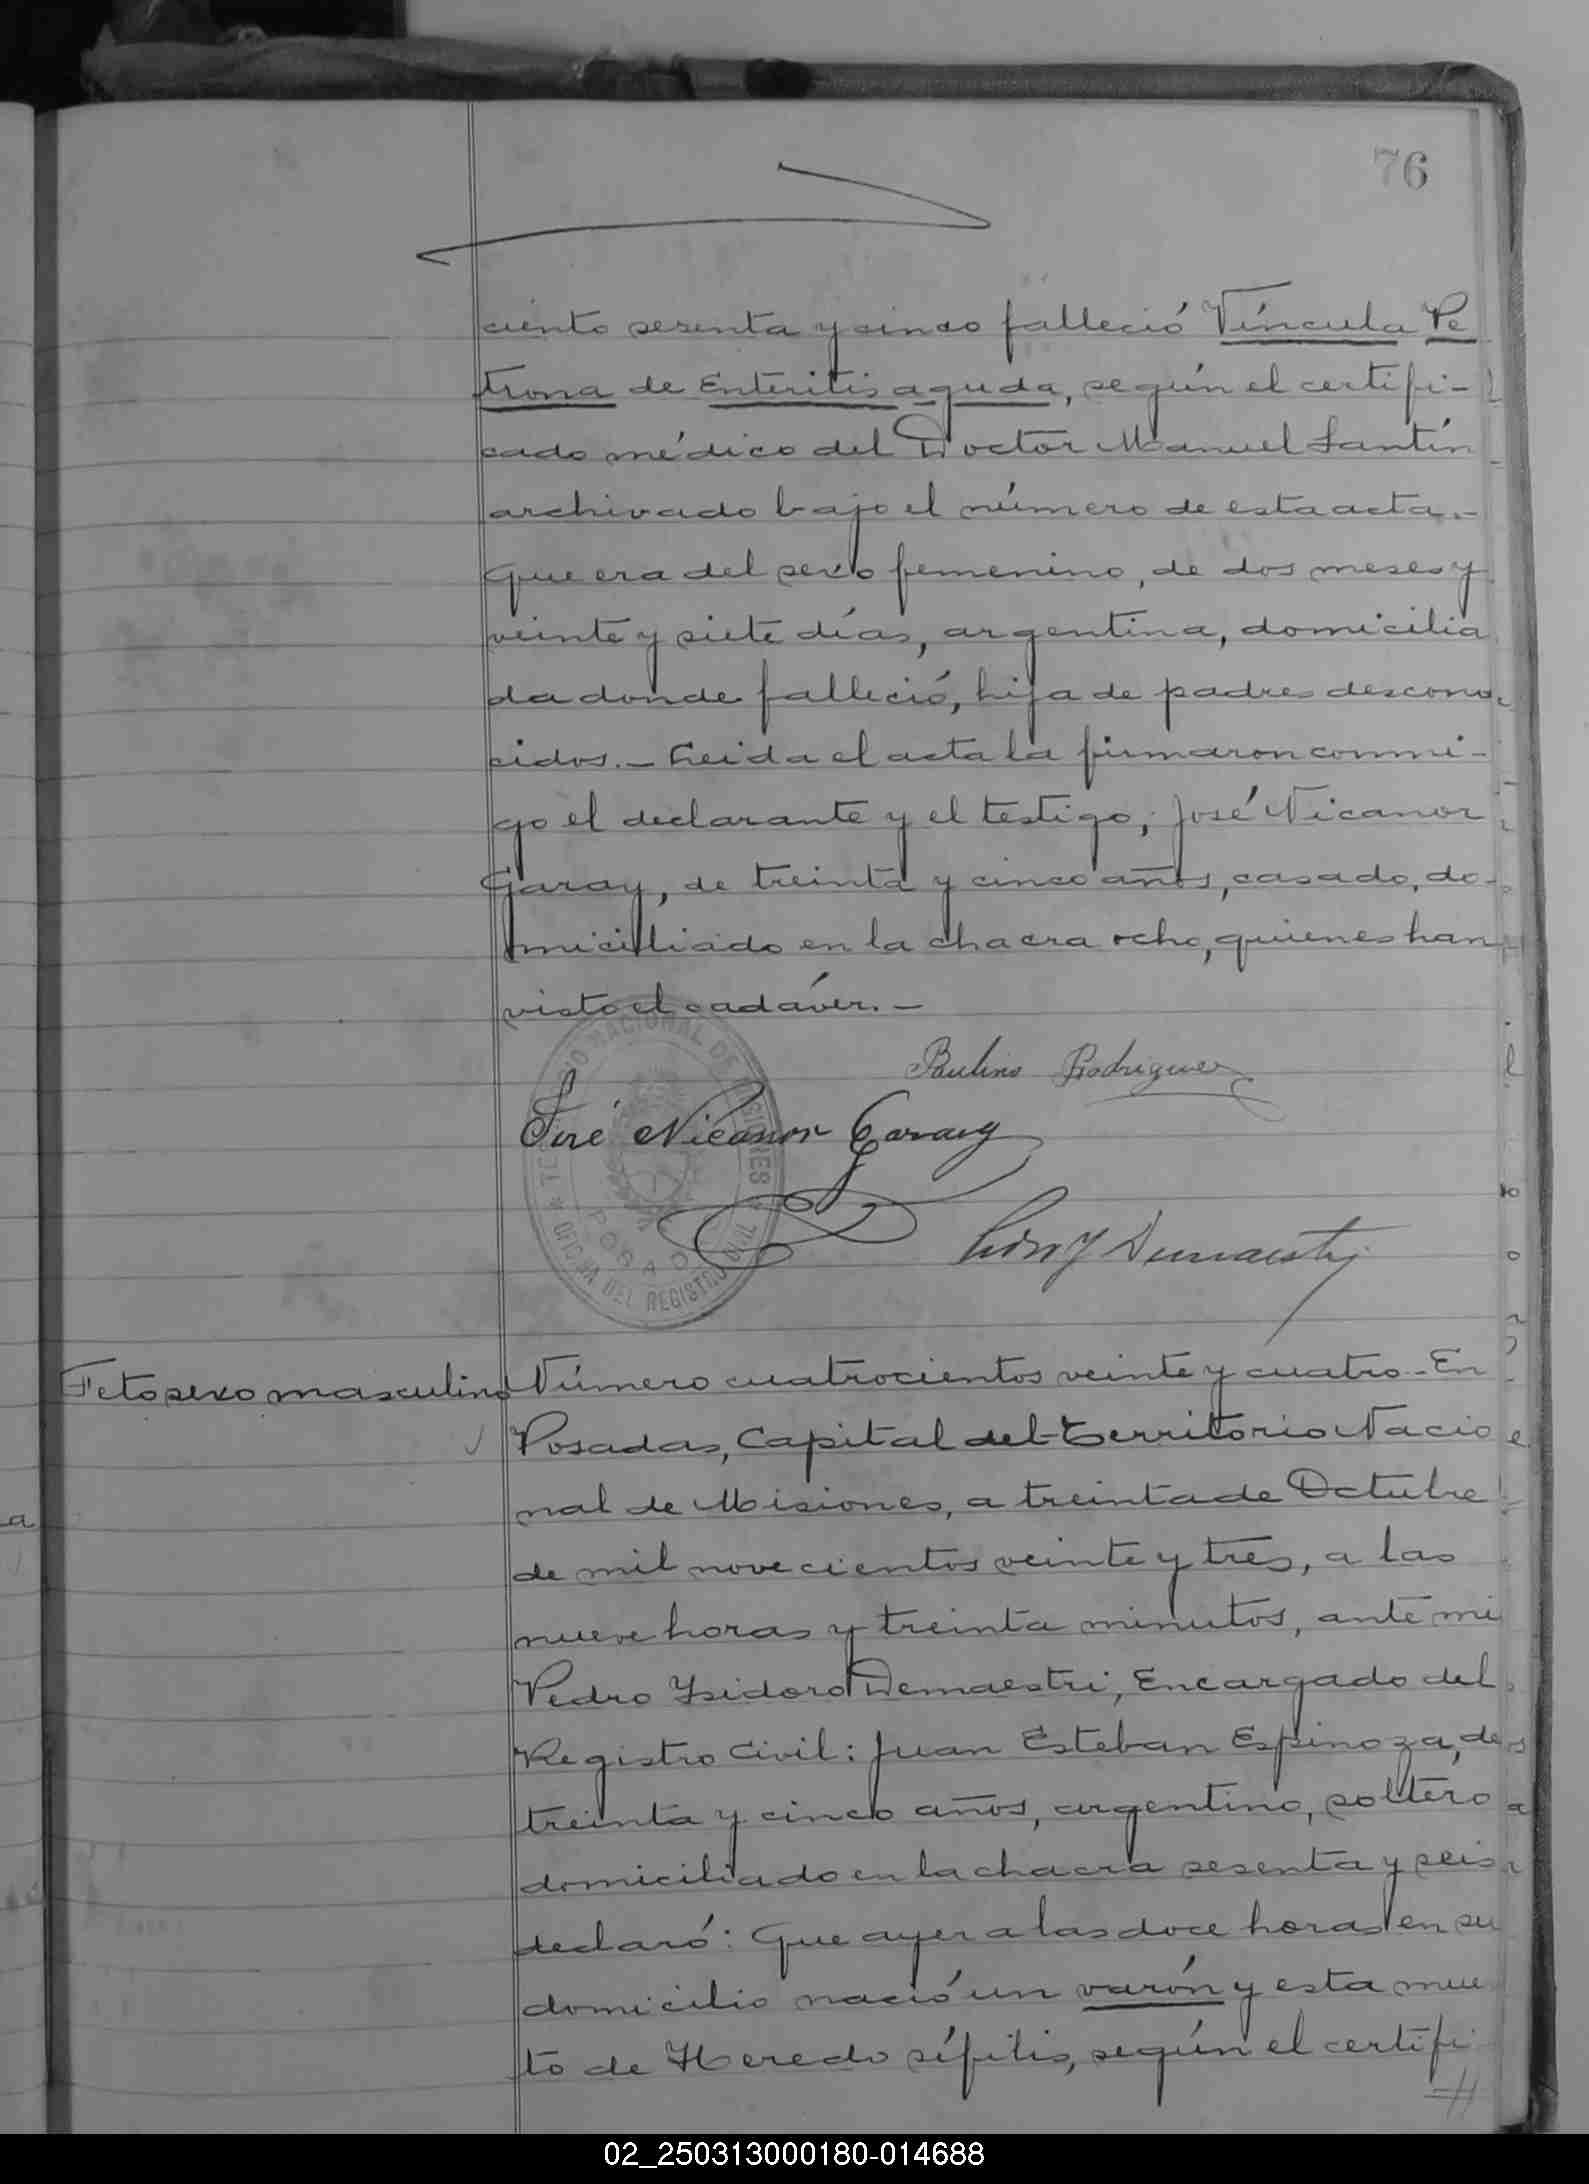 76
ciento sesenta y cinco falleció Víncula Pe
trona de Enteritis aguda, según el certifi-
cado médico del Doctor Manuel Santín
archivado bajo el número de esta acta.-
Que era del sexo femenino, de dos meses y
veinte y siete días, argentina, domicilia
da donde falleció, hija de padres descono
cidos.- Leida el acta la firmaron conmi-
go el declarante y el testigo, José Nicanor
Garay, de treinta y cinco años, casado, do-
miciliado en la chacra ocho, quienes han
visto el cadáver.-
Paulino Rodriguez
José Nicanor Garay
TERRITORIO NACIONAL DE MISIONES
POSADAS
OFICINA DEL REGISTRO CIVIL
Demaestri
Feto sexo masculino
Número cuatrocientos veinte y cuatro.- En
Posadas, Capital del Territorio Nacio
nal de Misiones, a treinta de Octubre
de mil novecientos veinte y tres, a las
nueve horas y treinta minutos, ante mi
Pedro Isidoro Demaestri, Encargado del
Registro Civil: Juan Esteban Espinoza, de
treinta y cinco años, argentino, soltero
domiciliado en la chacra sesenta y seis
declaró: Que ayer a las doce horas en su
domicilio nació un varón y esta mue
to de Heredo sífilis, según el certifi
02_250313000180-014688